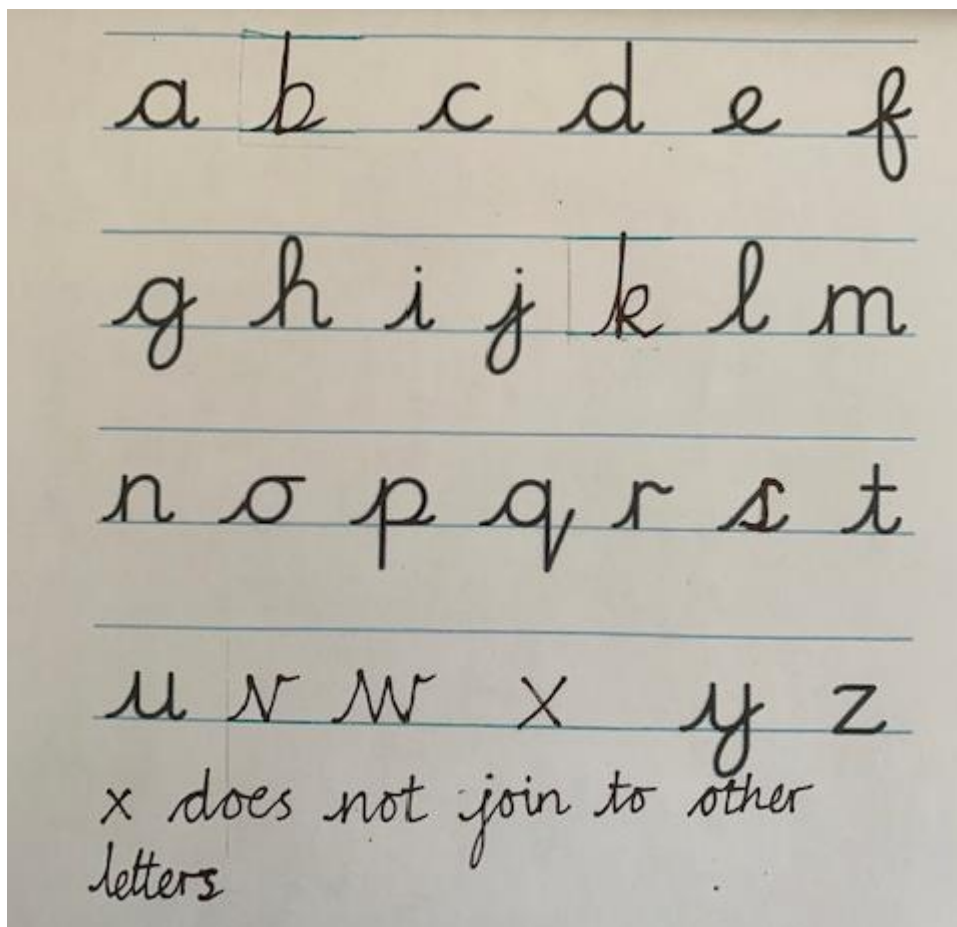 a b c d e f
g h i j k l m
n o p q r s t
u v w x y z
x does not join to other
letters